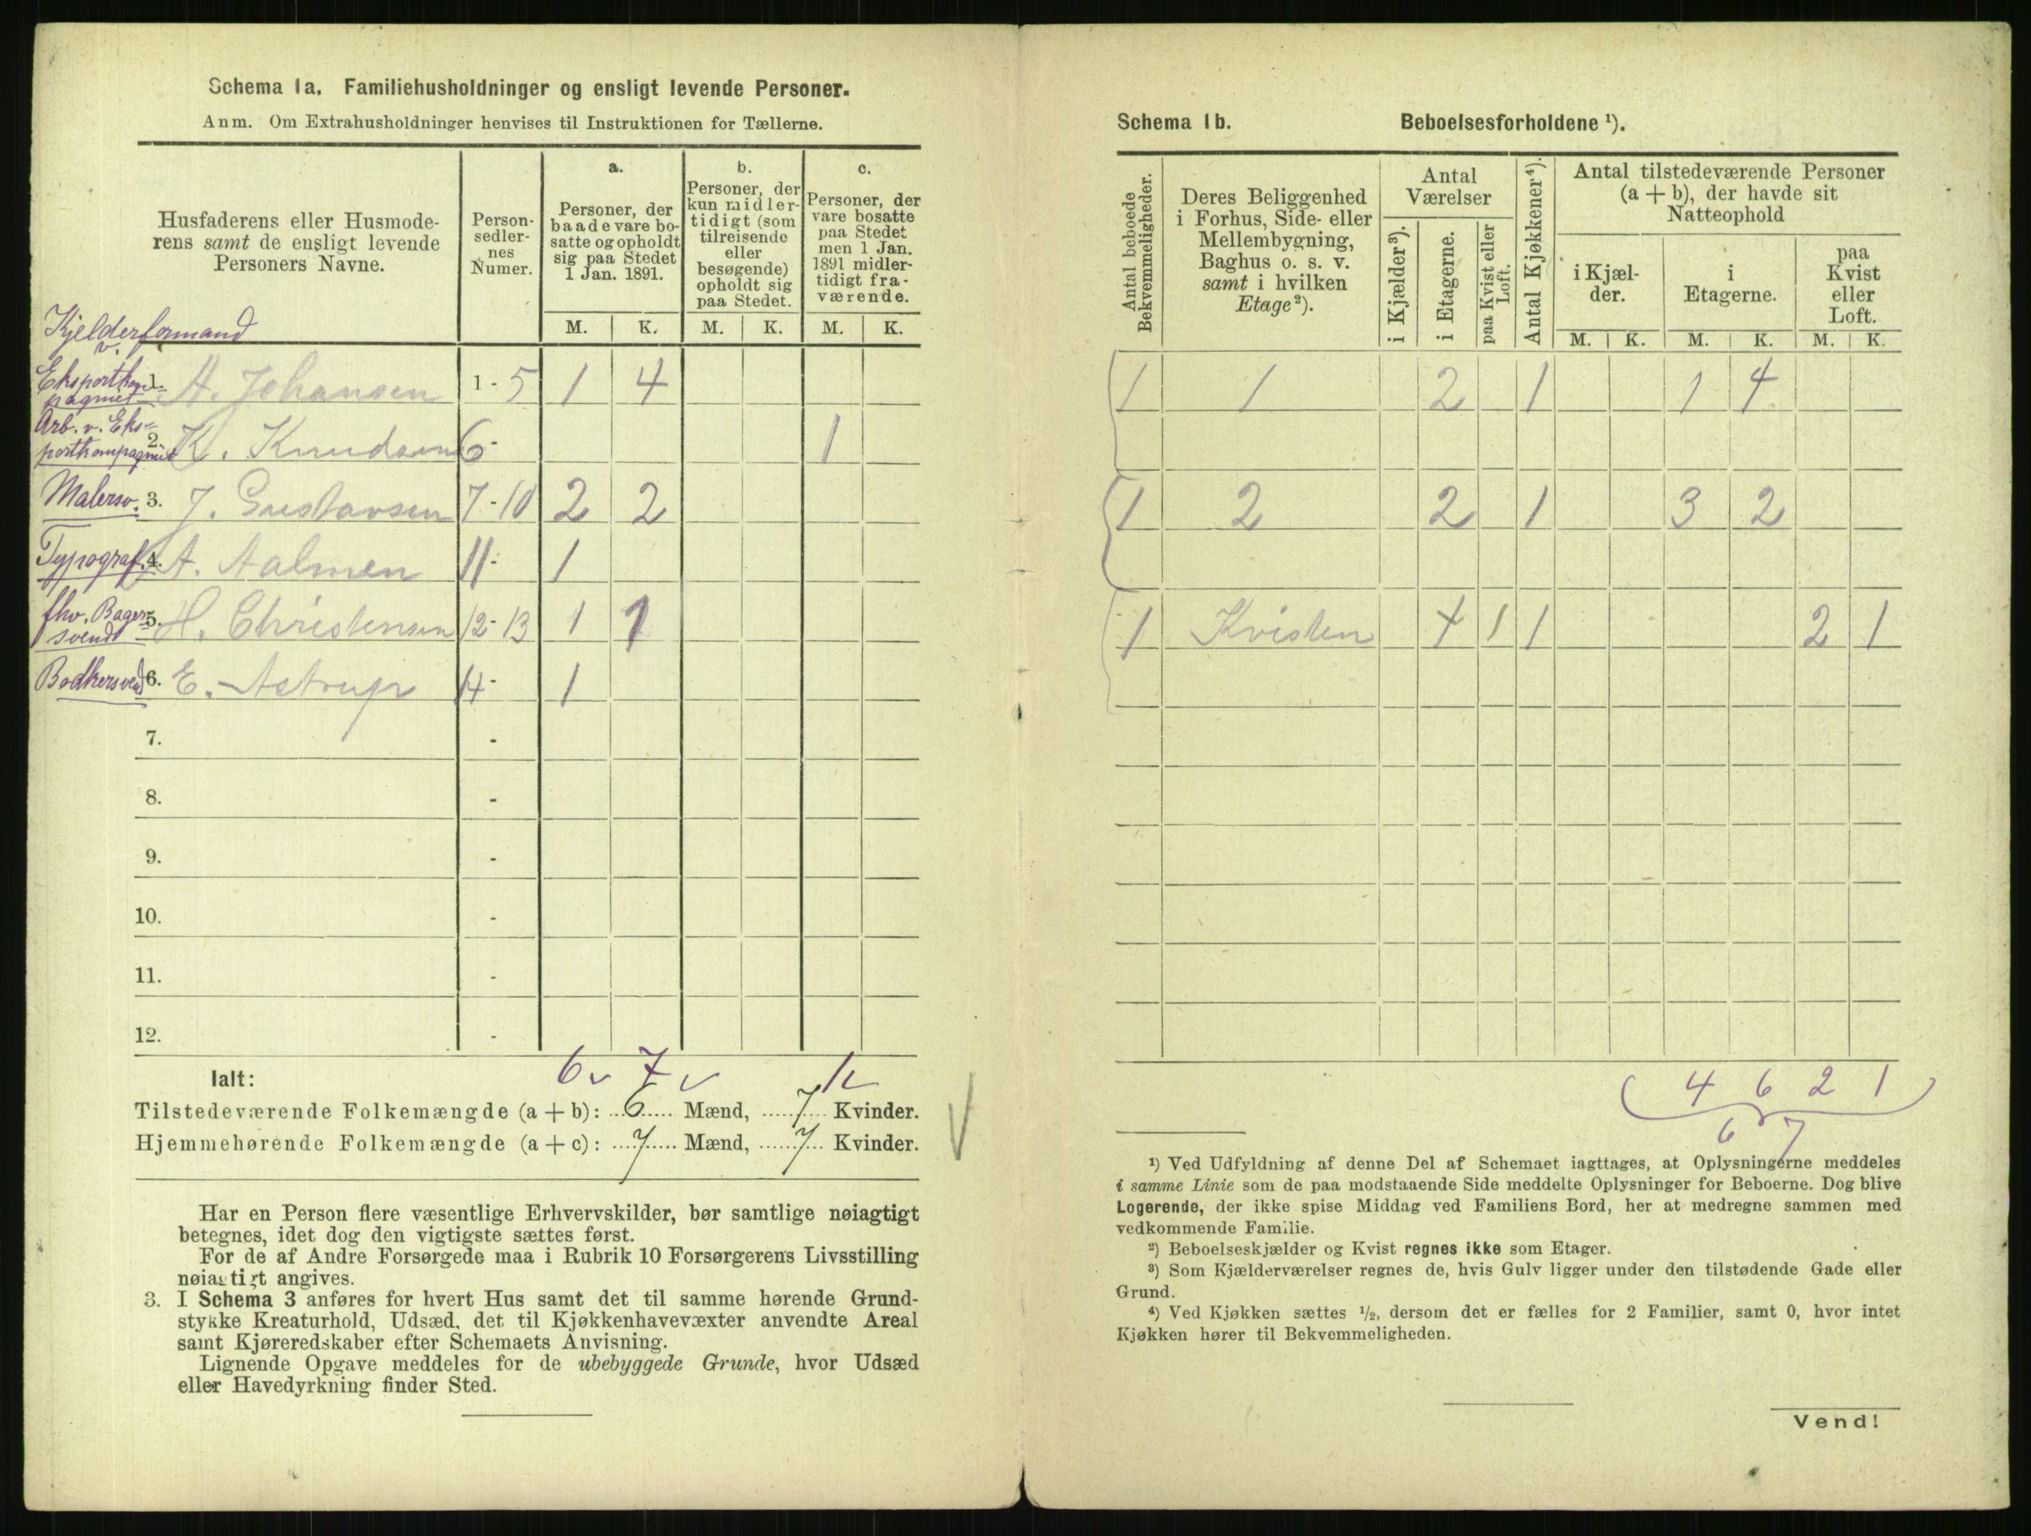 Schema 1a. Familiehusholdninger og ensligt levende Personer.
Anm. Om Extrahusholdninger henvises til Instruktionen for Tællerne.
Husfaderens eller Husmode-
rens samt de ensligt levende
Personers Navne.
Person-
sedler-
nes
Numer.
a.
Personer, der
baade vare bo-
satte og opholdt
sig paa Stedet
1 Jan. 1891.
b.
Personer, der
kun midler-
tidigt (som
tilreisende
eller
besøgende)
opholdt sig
paa Stedet.
c.
Personer, der
vare bosatte
paa Stedet
men 1 Jan.
1891 midler-
tidigt fra-
værende.
M. K. M. K. M. K.
Kjelderformand
v.
Eksportkom-
pagniet 1. A. Johansen 1-5 1 4
Arb. v. Eks-
portkompagniet 2. K. Knudsen 6- 1
Malersv. 3. J. Gustavsen 7-10 2 2
Typograf. 4. A. Aalmen 11- 1
fhv. Bager-
svend 5. H. Christensen 12-13 1 1
Bødkersvend 6. E. Astrup 14- 1
7. -
8. -
9. -
10. -
11. -
12. -
6 v 7 v 1 v
Ialt:
Tilstedeværende Folkemængde (a + b): 6 Mænd, 7 Kvinder.
Hjemmehørende Folkemængde (a + c): 7 Mænd, 7 Kvinder.
Har en Person flere væsentlige Erhvervskilder, bør samtlige nøiagtigt
betegnes, idet dog den vigtigste sættes først.
For de af Andre Forsørgede maa i Rubrik 10 Forsørgerens Livsstilling
nøiagtigt angives.
3. I Schema 3 anføres for hvert Hus samt det til samme hørende Grund-
stykke Kreaturhold, Udsæd, det til Kjøkkenhavevæxter anvendte Areal
samt Kjøreredskaber efter Schemaets Anvisning.
Lignende Opgave meddeles for de ubebyggede Grunde, hvor Udsæd
eller Havedyrkning finder Sted.
Schema 1b. Beboelsesforholdene ¹).
Antal beboede
Bekvemmeligheder.
Deres Beliggenhed
i Forhus, Side- eller
Mellembygning,
Baghus o. s. v.
samt i hvilken
Etage²).
Antal
Værelser
i Kjælder³).
i Etagerne.
paa Kvist eller
Loft.
Antal Kjøkkener⁴).
Antal tilstedeværende Personer
(a + b), der havde sit
Natteophold
i Kjæl-
der.
i
Etagerne.
paa
Kvist
eller
Loft.
M. K. M. K. M. K.
1 1 2 1 1 4
1 2 2 1 3 2
1 Kvisten 4 1 1 2 1
4 6 2 1
6 7
¹) Ved Udfyldning af denne Del af Schemaet iagttages, at Oplysningerne meddeles
i samme Linie som de paa modstaaende Side meddelte Oplysninger for Beboerne. Dog blive
Logerende, der ikke spise Middag ved Familiens Bord, her at medregne sammen med
vedkommende Familie.
²) Beboelseskjælder og Kvist regnes ikke som Etager.
³) Som Kjælderværelser regnes de, hvis Gulv ligger under den tilstødende Gade eller
Grund.
⁴) Ved Kjøkken sættes ½, dersom det er fælles for 2 Familier, samt 0, hvor intet
Kjøkken hører til Bekvemmeligheden.
Vend!